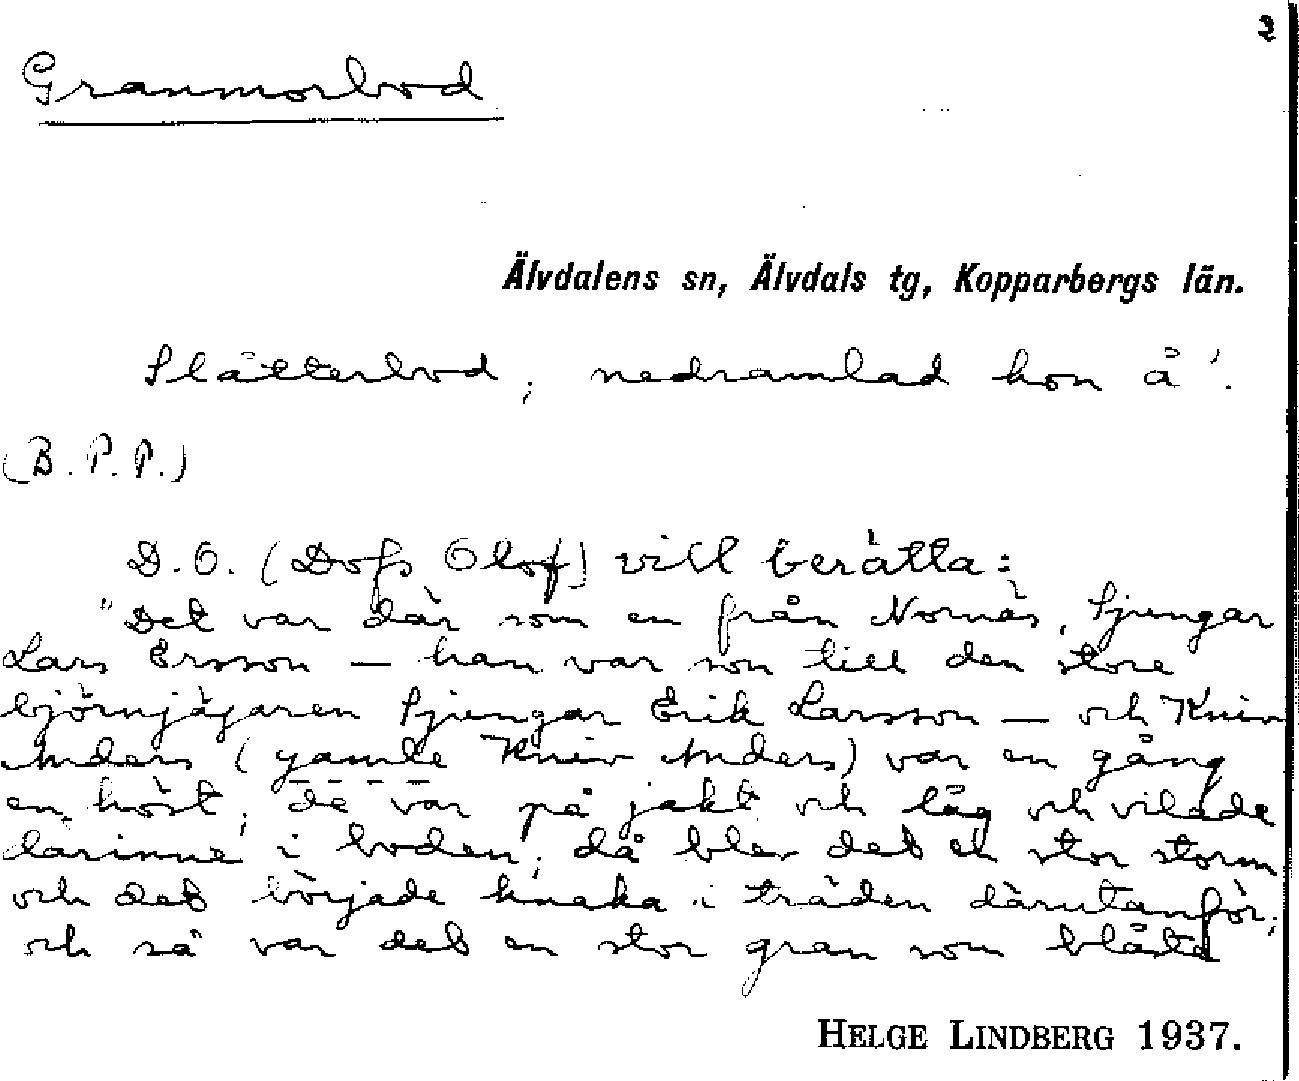 2
Granmorbod
Älvdalens sn, Älvdals tg, Kopparbergs län.
Slåtterbod; nedramlad hon å'.
(B. P. P.)
D. O. (Dofs Olof) vill berätta:
"Det var där som en från Nornäs, Ljungar
Lars Ersson – han var son till den store
björnjägaren Ljungar Erik Larsson – och Kniv
Anders (gamle Kniv Anders) var en gång
en höst, de var på jakt och låg och vilade
därinne i boden; då blev det en stor storm
och det började knaka i träden därutanför;
och så var det en stor gran som blåste
HELGE LINDBERG 1937.